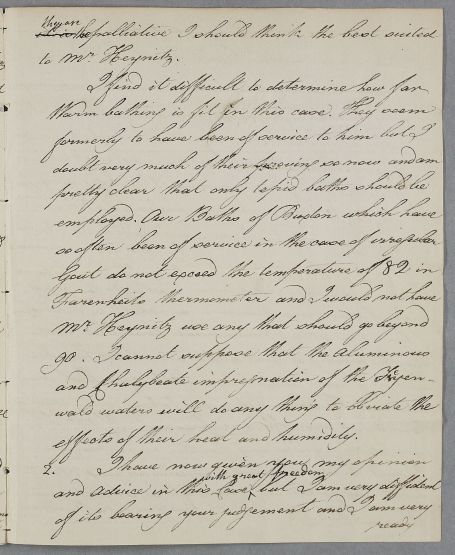 they are palliative I should think the best suited
to Mr. Heynitz.
I find it difficult to determine how far
Warm bathing is fit in this case. They seem
formerly to have been of service to him but I
doubt very much of their proving so now and am
pretty clear that only tepid baths should be
employed. Our Baths of Buxton which have
so often been of service in the case of irregular
Gout do not exceed the temperature of 82 in
Farenheits thermometer and I would not have
Mr. Heynitz use any that should go beyond
90. I cannot suppose that the Aluminous
and Chalybeate impregnation of the Freyen-
wald waters will do any thing to obviate the
effects of their heat and humidity.
2. I have now given you my opinion
and advice in this case with great freedom but I am very diffident
of its bearing your judgement and I am very
ready